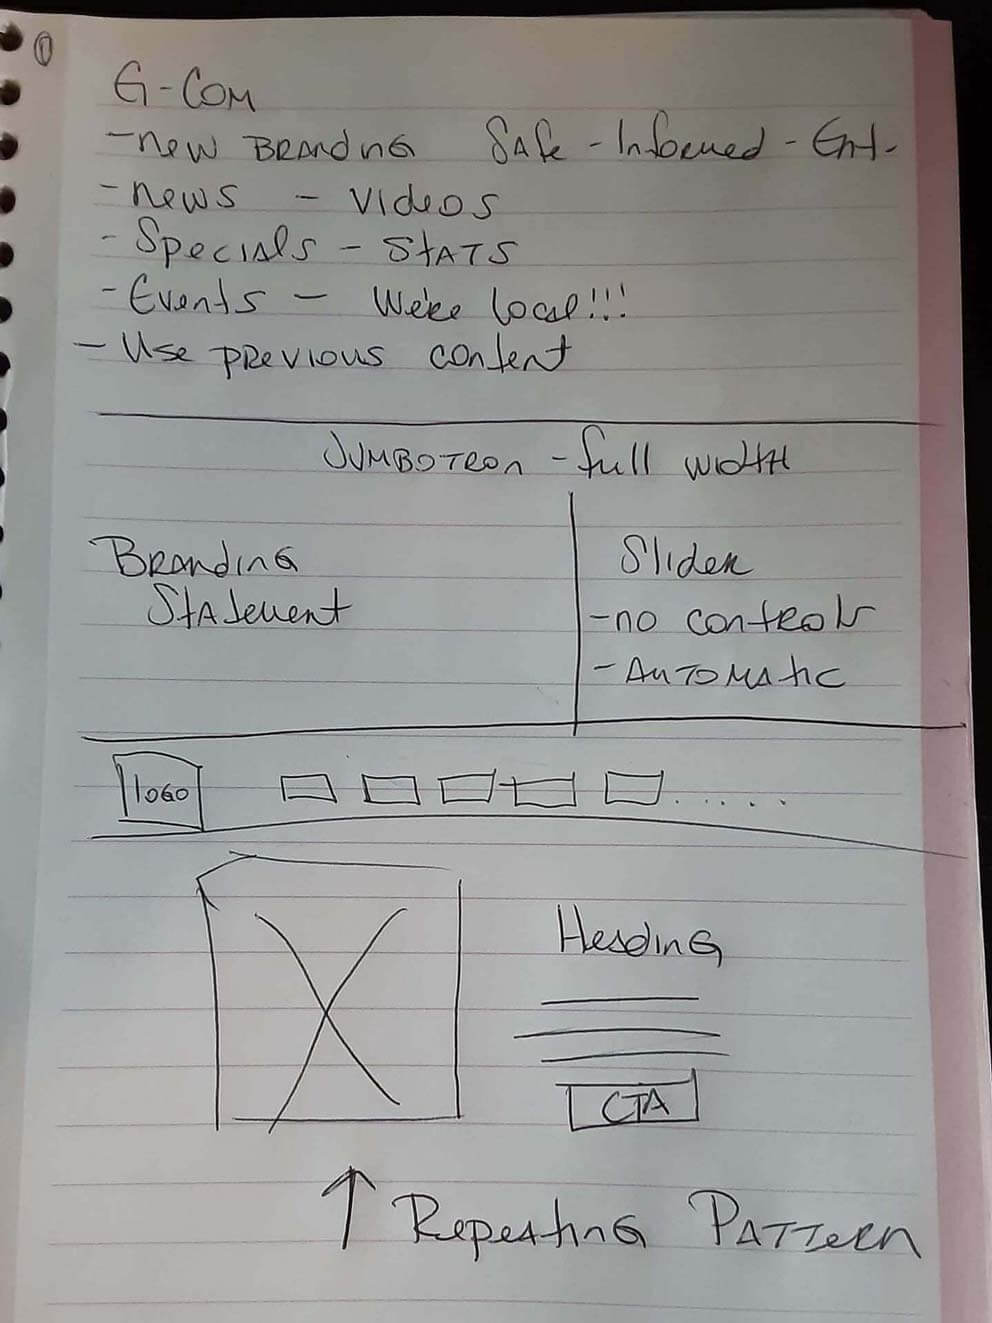 1
G-COM
- new BRANDING Safe - Informed - Ent.
- news - videos
- Specials - STATS
- Events - We're local!!!
- Use previous content
JUMBOTRON - full width
Branding
Statement
Slider
- no controls
- AUTOMATIC
LOGO
Heading
CTA
↑ Repeating PATTERN